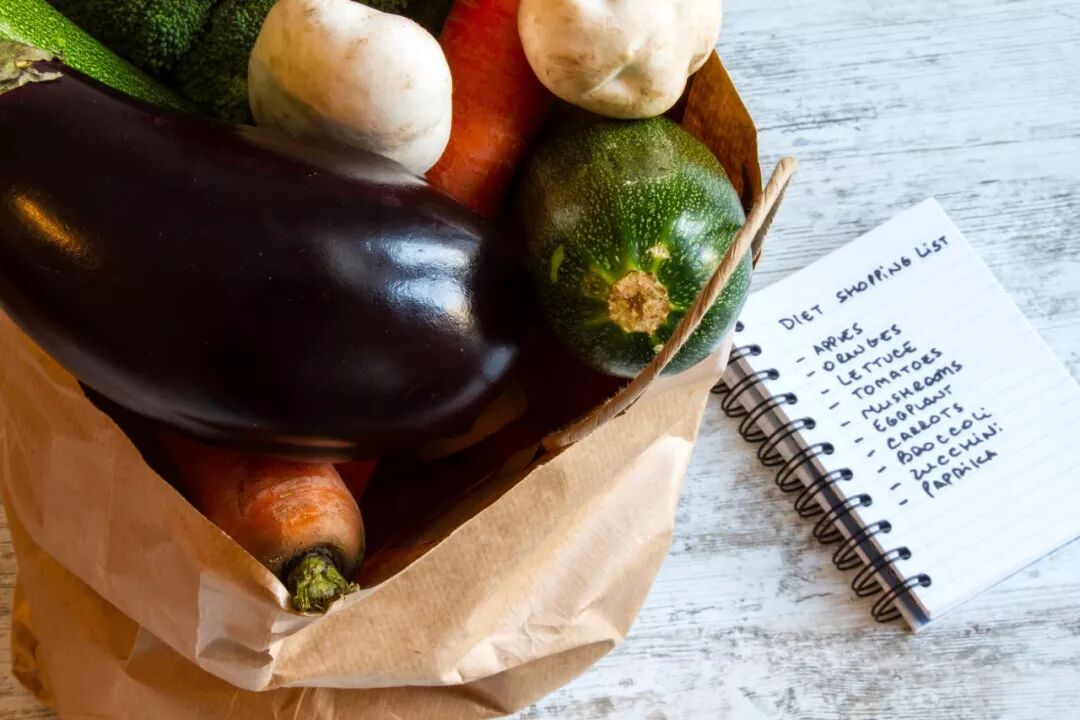 DIET SHOPPING LIST
- APPLES
- ORANGES
- LETTUCE
- TOMATOES
- MUSHROOMS
- EGGPLANT
- CARROTS
- BROCCOLI
- ZUCCHINI
- PAPRIKA